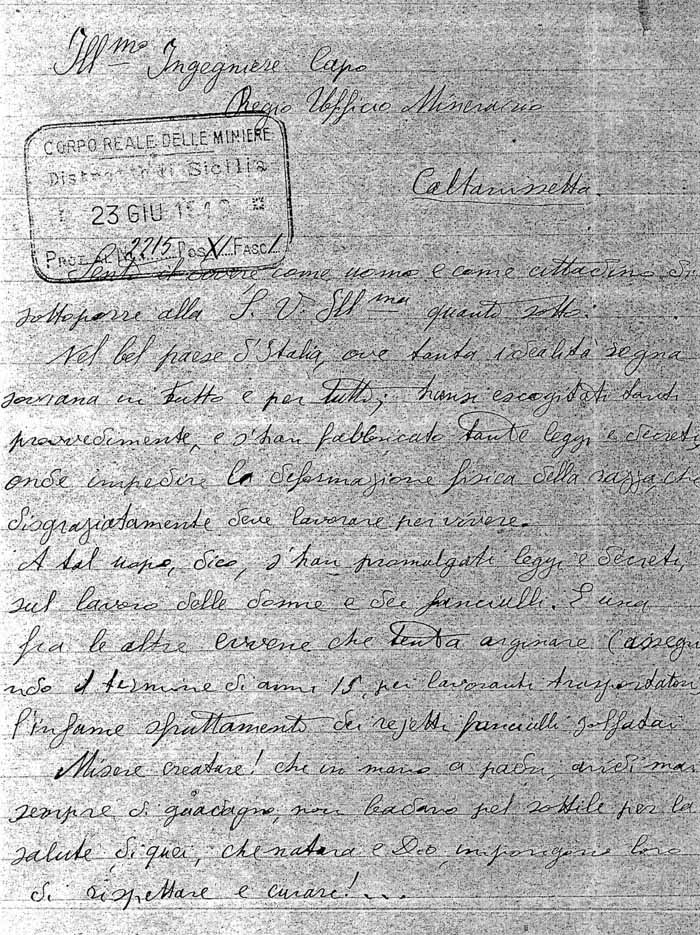 Ill.mo Ingegniere Capo
Regio Ufficio Minerario
Caltanissetta
CORPO REALE DELLE MINIERE
Distretto di Sicilia
23 GIU
PROT. AL N. 2215 POS XI FASC 1
Sento il dovere come uomo e come cittadino di
sottoporre alla S. V. Ill.ma quanto sotto:
Nel bel paese d'Italia, ove tanta idealità regna
sovrana in tutto e per tutto; hansi escogitati tanti
provvedimente, e s'han fabbricato tante leggi e decreti,
onde impedire la deformazione fisica della razza, che
disgraziatamente deve lavorare per vivere.
A tal uopo, dico, s'han promulgati leggi e decreti,
sul lavoro delle donne e dei fanciulli. E una
fra le altre evvene che tenta arginare (assegna
ndo il termine di anni 15, pei lavoranti trasportatori
l'infame sfruttamento dei rejetti fanciulli zolfatai
Misere creature! che in mano a padri, avidi mai
sempre di guadagno, non badano pel sottile per la
salute di quei, che natura e Dio imporigono loro
di rispettare e curare!...